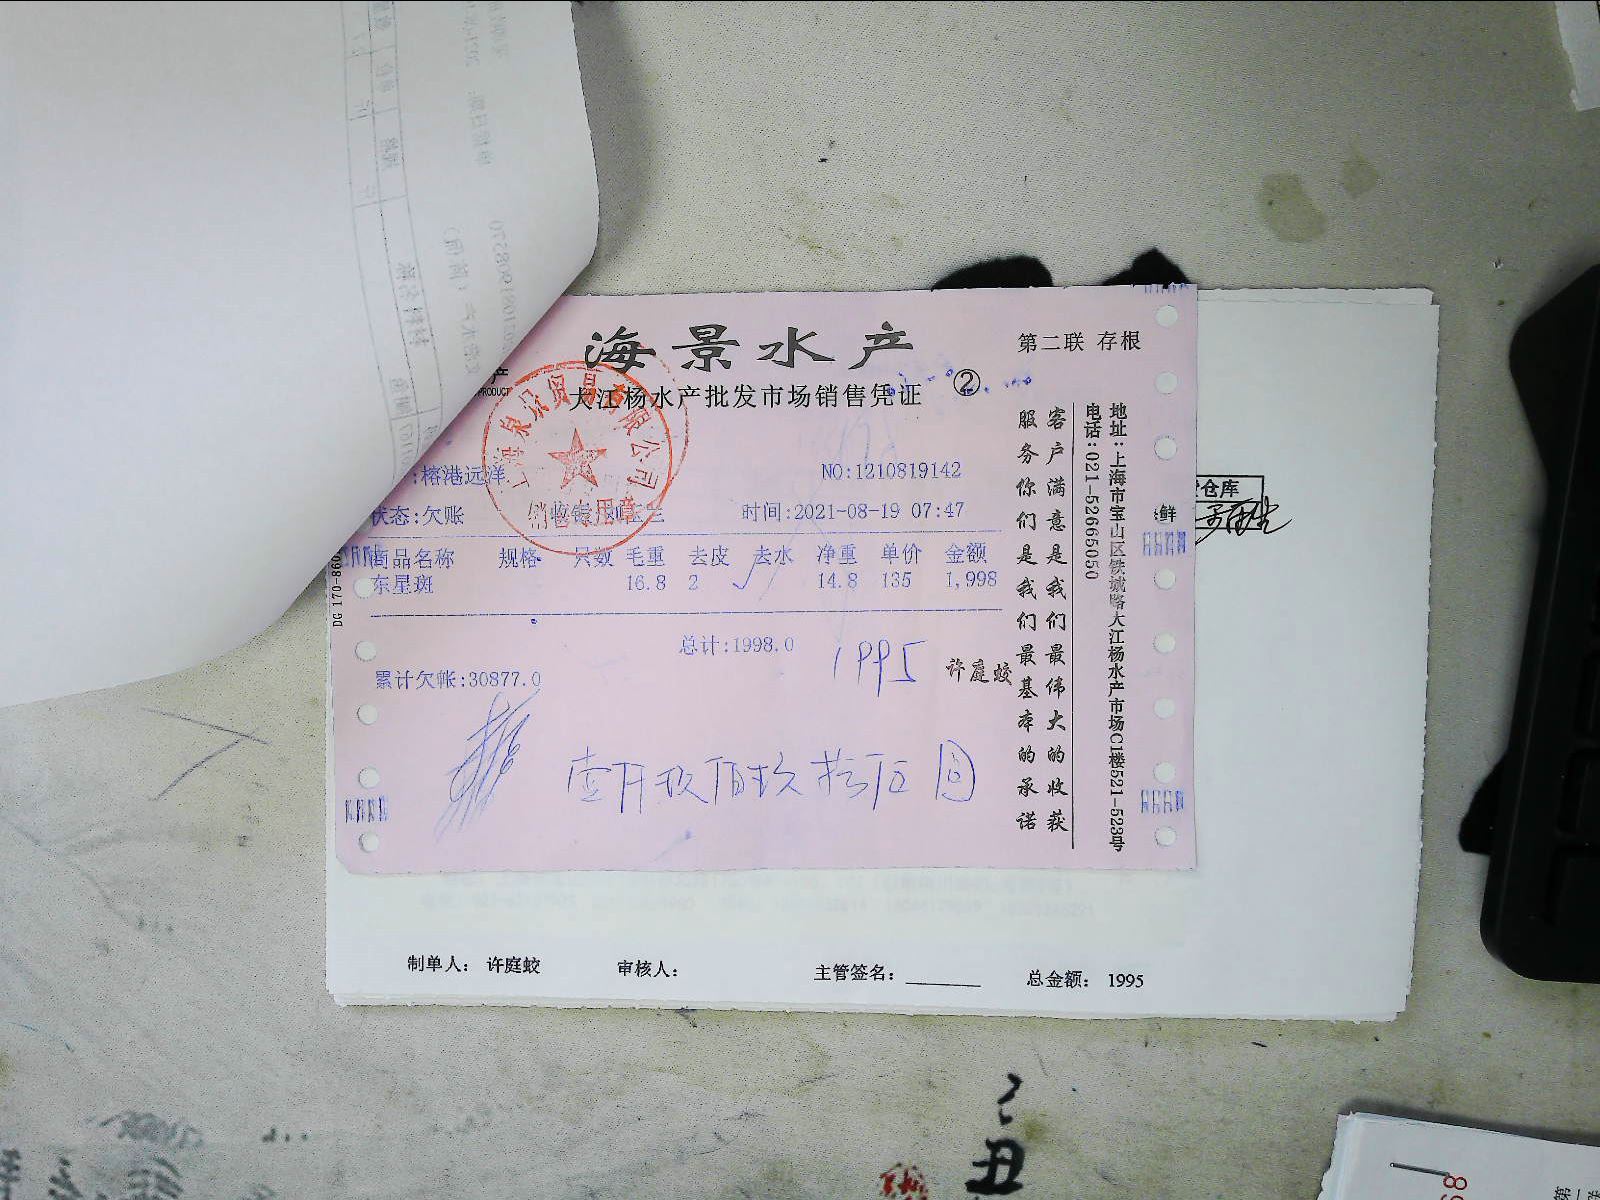 海景水产
第二联 存根
大江杨水产批发市场销售凭证 ②
:榕港远洋
NO:1210819142
状态:欠账
时间:2021-08-19 07:47
商品名称 规格 只数 毛重 去皮 去水 净重 单价 金额
东星斑 16.8 2 14.8 135 1,998
总计:1998.0
1995
许庭蛟
累计欠帐:30877.0
壹仟玖佰玖拾伍圆
客户满意是我们最伟大的收获
服务你们是我们最基本的承诺
地址:上海市宝山区铁城路大江杨水产市场C1楼521-523号
电话:021-52665050
DG 170-860
PRODUCT
仓库
鲜
制单人: 许庭蛟 审核人: 主管签名: 总金额: 1995
丑